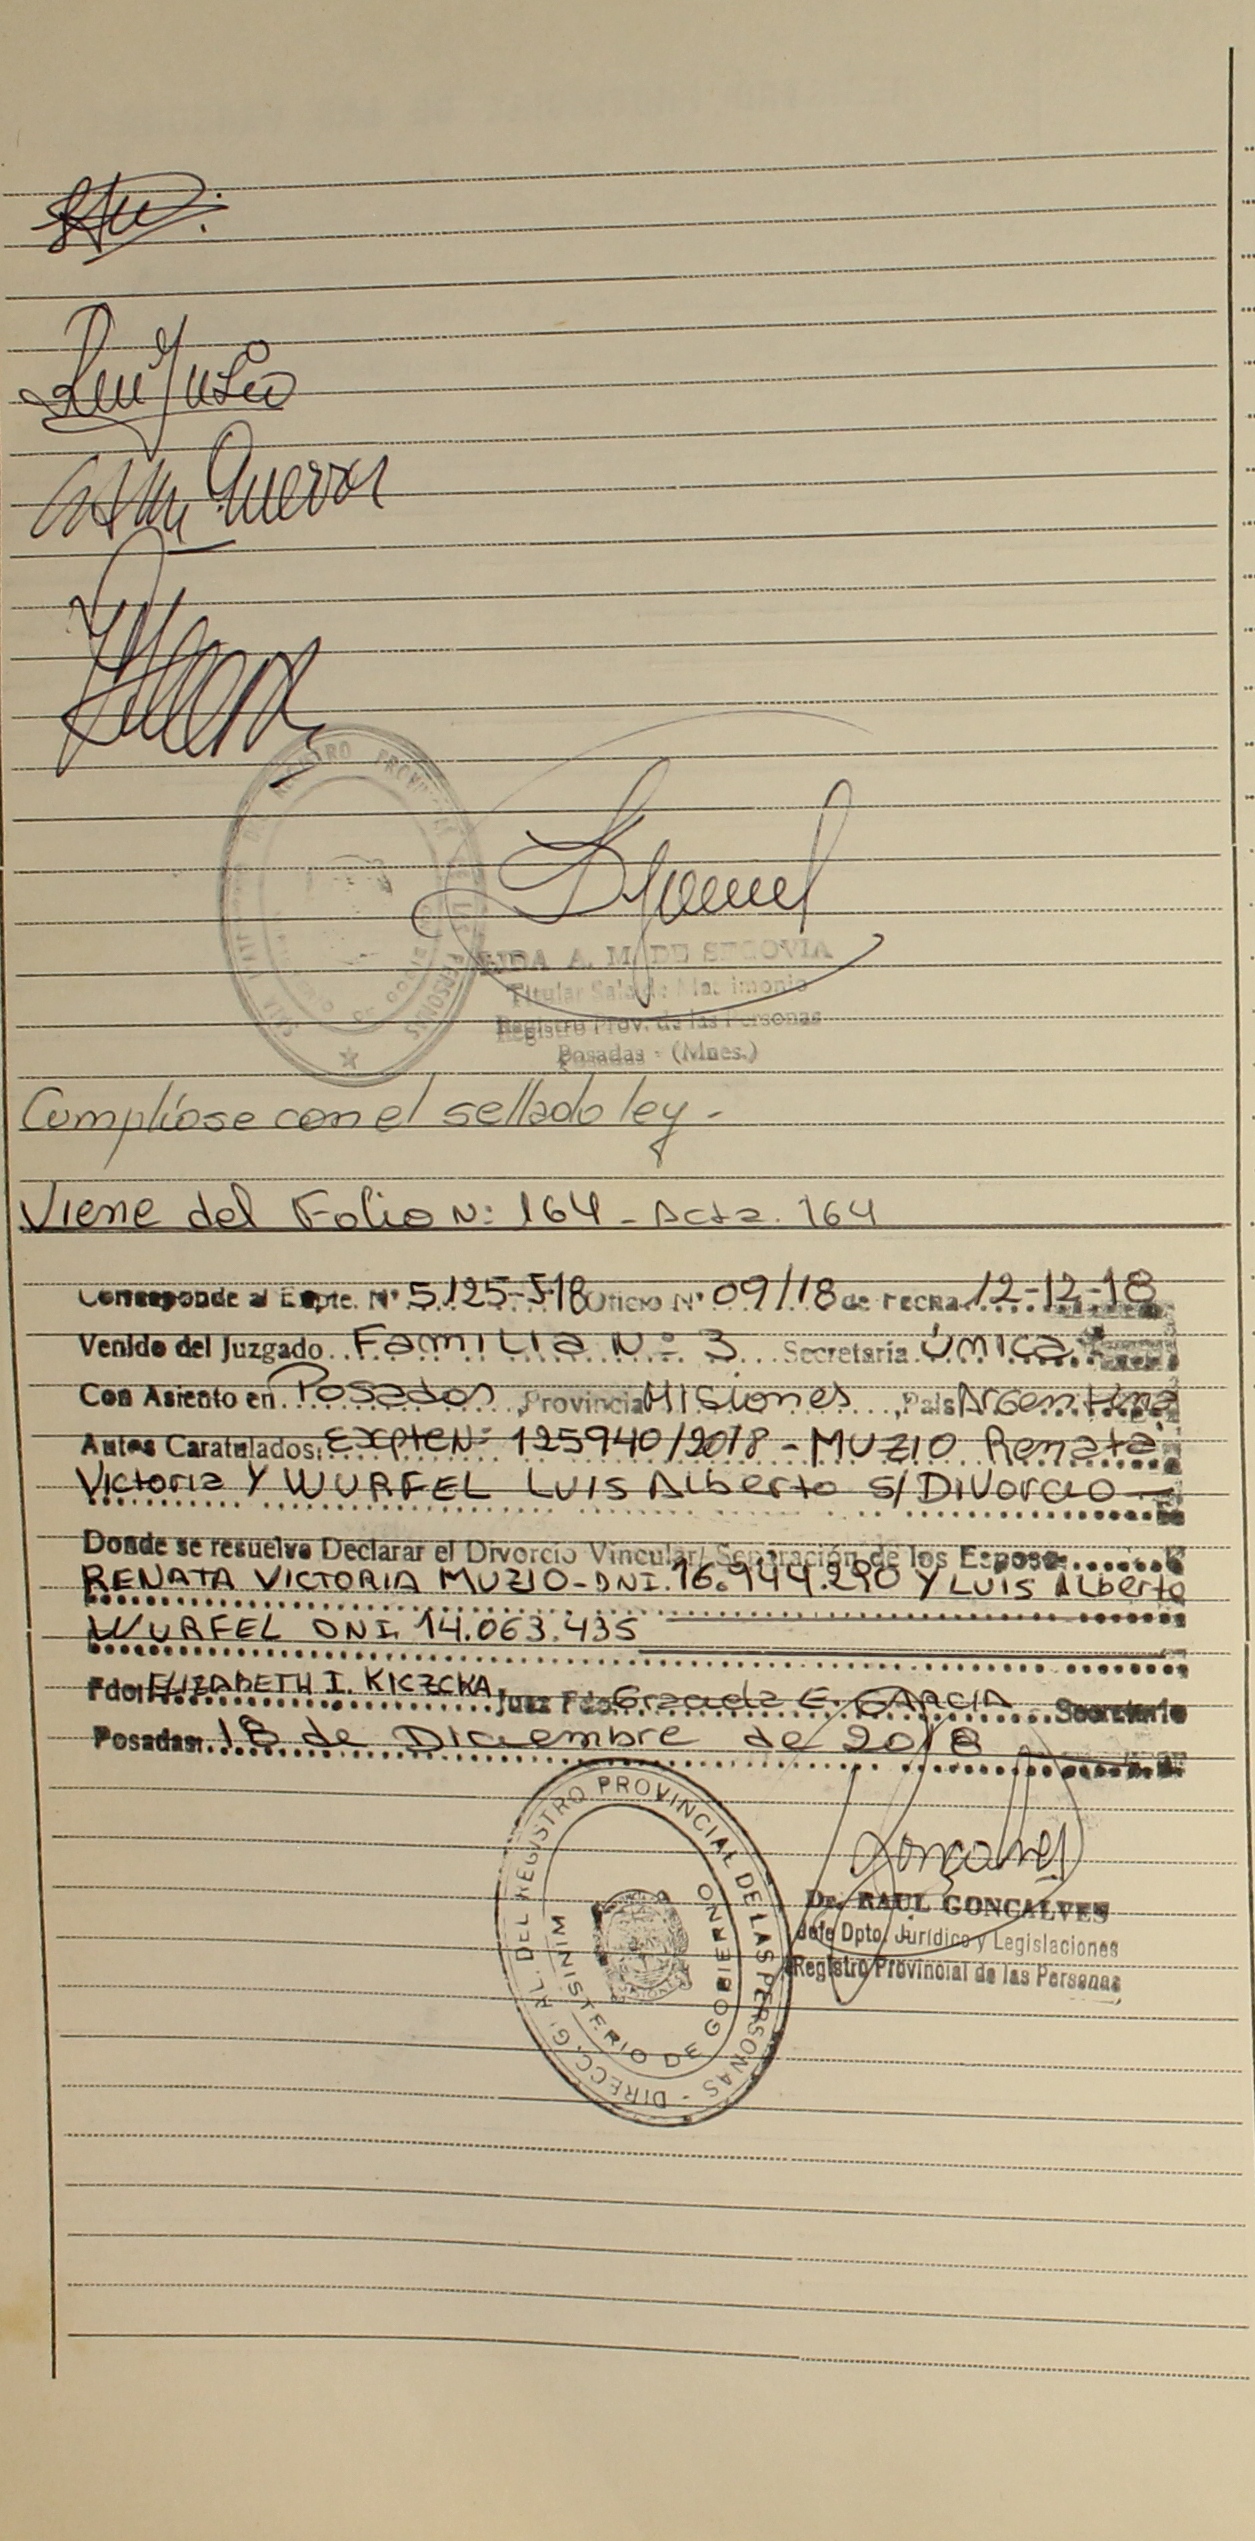 Guerra
REGISTRO PROVINCIAL DE LAS PERSONAS
LIDA A. M. DE SEGOVIA
Titular Sala de Matrimonio
Registro Prov. de las Personas
Posadas - (Mnes.)
Cumplíose con el sellado ley -
Viene del Folio N: 164 - Acta. 164
Corresponde al Expte. N° 5125-J-18 Oficio N° 09/18 de Fecha 12-12-18
Venido del Juzgado Familia N° 3 Secretaria Única
Con Asiento en Posadas, Provincia Misiones, País Argentina
Autos Caratulados: Expte N: 125940/2018 - MUZIO Renata
Victoria Y WURFEL LUIS Alberto S/ Divorcio
Donde se resuelve Declarar el Divorcio Vincular/ Separación de los Esposos
RENATA VICTORIA MUZIO - DNI. 16.944.290 Y LUIS Alberto
WURFEL DNI. 14.063.435
Fdo: ELIZABETH I. KICZCKA Juez Fdo: Graciela E. GARCIA Secretario
Posadas: 18 de Diciembre de 2018
DIRECC. GRL. DEL REGISTRO PROVINCIAL DE LAS PERSONAS -
MINISTERIO DE GOBIERNO
Gonçalves
Dr. RAUL GONCALVES
Jefe Dpto. Jurídico y Legislaciones
Registro Provincial de las Personas